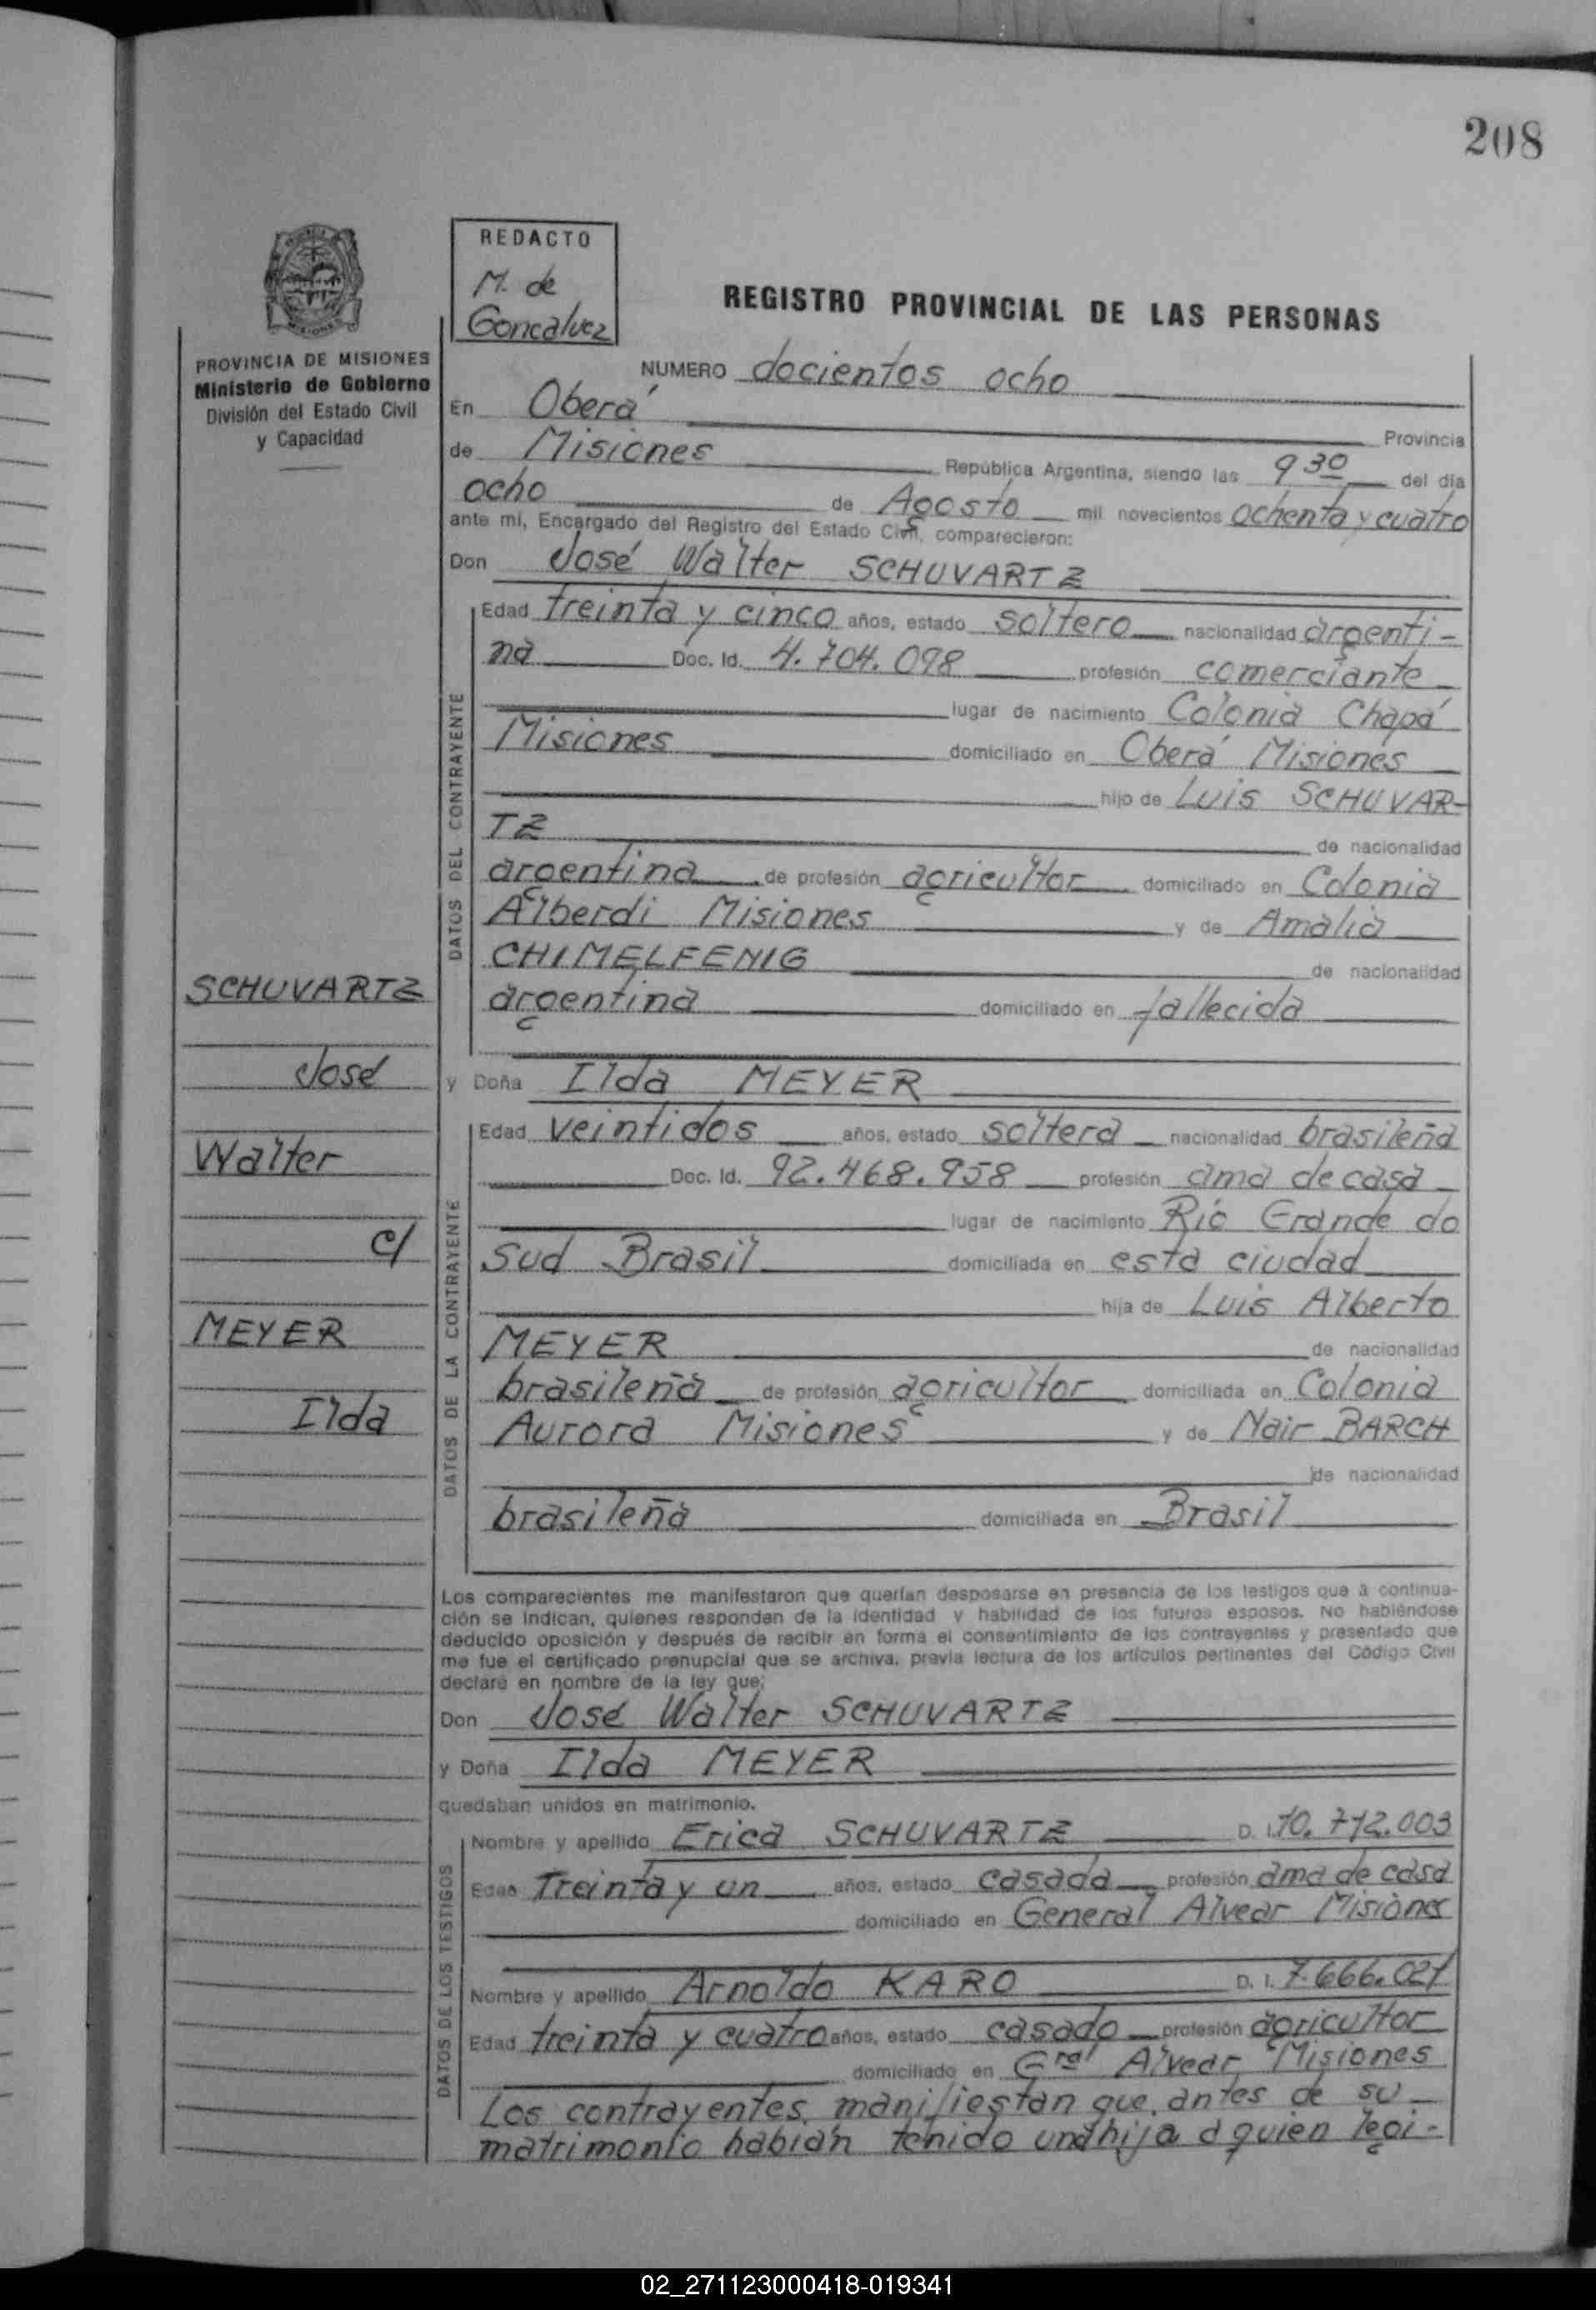 208
REDACTO
M. de
Goncalvez
REGISTRO PROVINCIAL DE LAS PERSONAS
PROVINCIA DE MISIONES
Ministerio de Gobierno
División del Estado Civil
y Capacidad
NUMERO docientos ocho
En Oberá Provincia
de Misiones República Argentina, siendo las 9 30 del día
ocho de Agosto mil novecientos ochenta y cuatro
ante mí, Encargado del Registro del Estado Civil, comparecieron:
Don José Walter SCHUVARTZ
DATOS DEL CONTRAYENTE
Edad treinta y cinco años, estado soltero nacionalidad argenti-
na Doc. Id. 4.704.098 profesión comerciante
lugar de nacimiento Colonia Chapá
Misiones domiciliado en Oberá Misiones
hijo de Luis SCHUVAR-
TZ de nacionalidad
argentina de profesión agricultor domiciliado en Colonia
Alberdi Misiones y de Amalia
CHIMELFENIG de nacionalidad
argentina domiciliado en fallecida
SCHUVARTZ
José
Walter
c/
MEYER
Ilda
y Doña Ilda MEYER
DATOS DE LA CONTRAYENTE
Edad veintidos años, estado soltera nacionalidad brasileña
Doc. Id. 92.468.958 profesión ama de casa
lugar de nacimiento Río Grande do
Sud Brasil domiciliada en esta ciudad
hija de Luis Alberto
MEYER de nacionalidad
brasileña de profesión agricultor domiciliada en Colonia
Aurora Misiones y de Nair BARCH
de nacionalidad
brasileña domiciliada en Brasil
Los comparecientes me manifestaron que querían desposarse en presencia de los testigos que a continua-
ción se indican, quienes responden de la identidad y habilidad de los futuros esposos. No habiéndose
deducido oposición y después de recibir en forma el consentimiento de los contrayentes y presentado que
me fue el certificado prenupcial que se archiva, previa lectura de los artículos pertinentes del Código Civil
declaré en nombre de la ley que:
Don José Walter SCHUVARTZ
y Doña Ilda MEYER
quedaban unidos en matrimonio.
DATOS DE LOS TESTIGOS
Nombre y apellido Erica SCHUVARTZ D. I. 10.712.003
Edad Treinta y un años, estado casada profesión ama de casa
domiciliado en General Alvear Misiones
Nombre y apellido Arnoldo KARO D. I. 7.666.021
Edad treinta y cuatro años, estado casado profesión agricultor
domiciliado en Gral Alvear Misiones
Los contrayentes manifiestan que antes de su
matrimonio habían tenido una hija a quien legi-
02_271123000418-019341